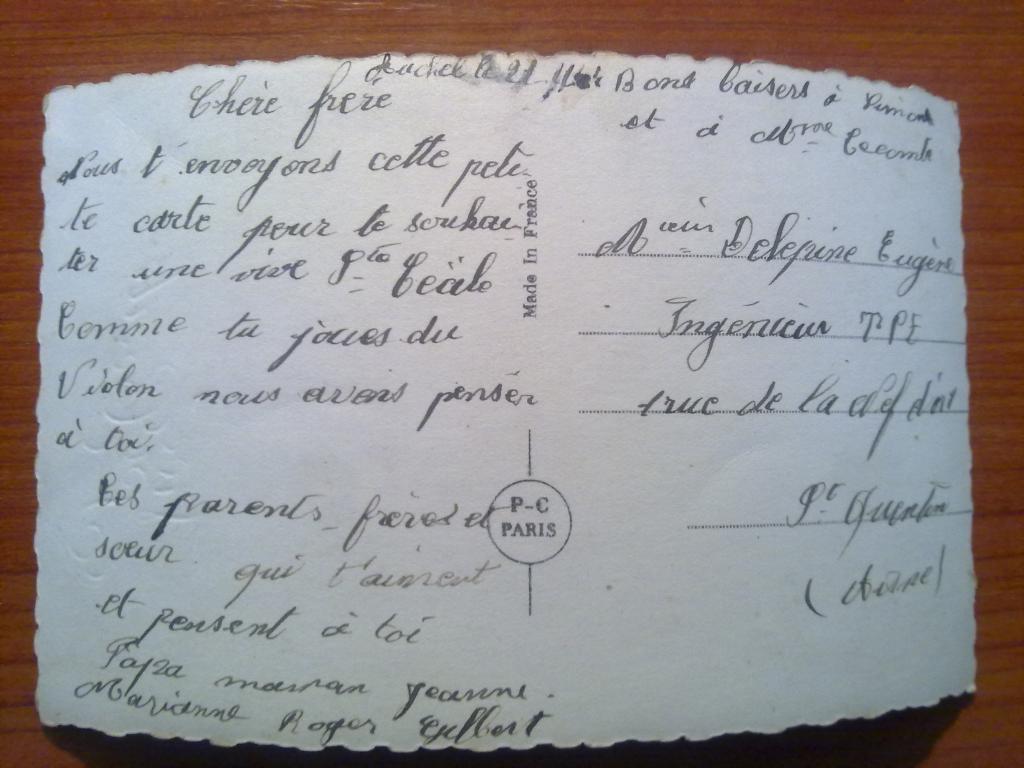 le 21
Chère frère
Nous t'envoyons cette peti-
te carte pour te souhai-
ter une vive Ste Cécile
Comme tu joues du
Violon nous avons penser
à toi.
Tes parents frères et
sœur qui t'aiment
et pensent à toi
Papa maman Jeanne.
Marianne Roger Gilbert
Made In France
P-C
PARIS
Bons baisers à
et à Mme
Delepine Eugène
Ingénieur TPE
rue de la clef d'or
St Quentin
(Aisne)